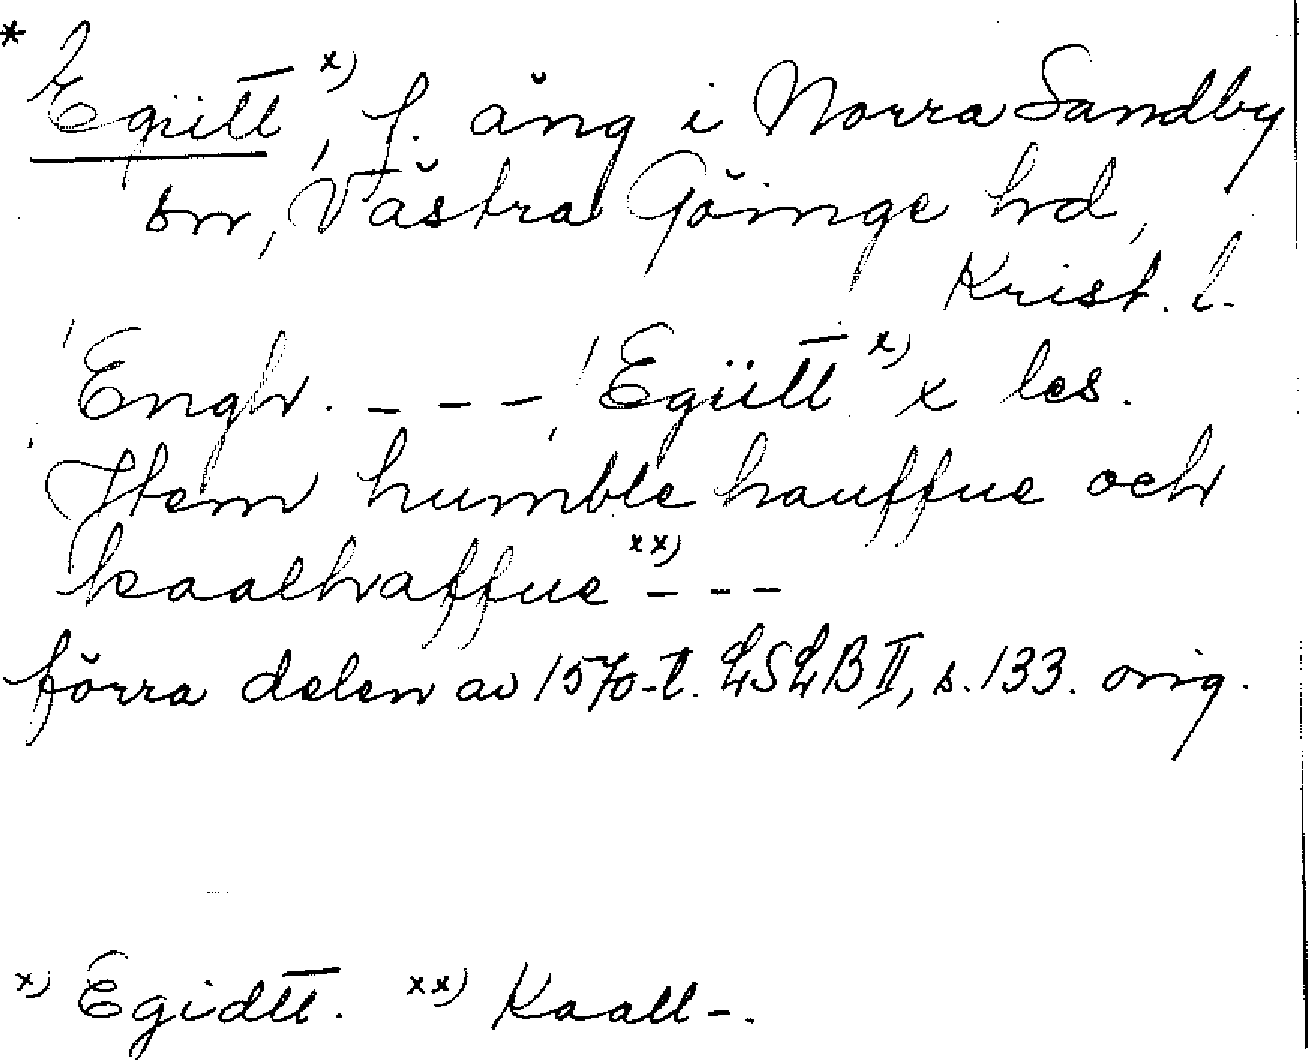 * Egütt̄ x), f. äng i Norra Sandby
sn, Västra Göinge hd,
Krist. l.
Engh. - - - Egütt̄ x) x les.
Item humble hauffue och
kaalhaffue xx) - - -
förra delen av 1570-t. LSLB II, s. 133. orig.
x) Egidtt̄. xx) Kaall-.